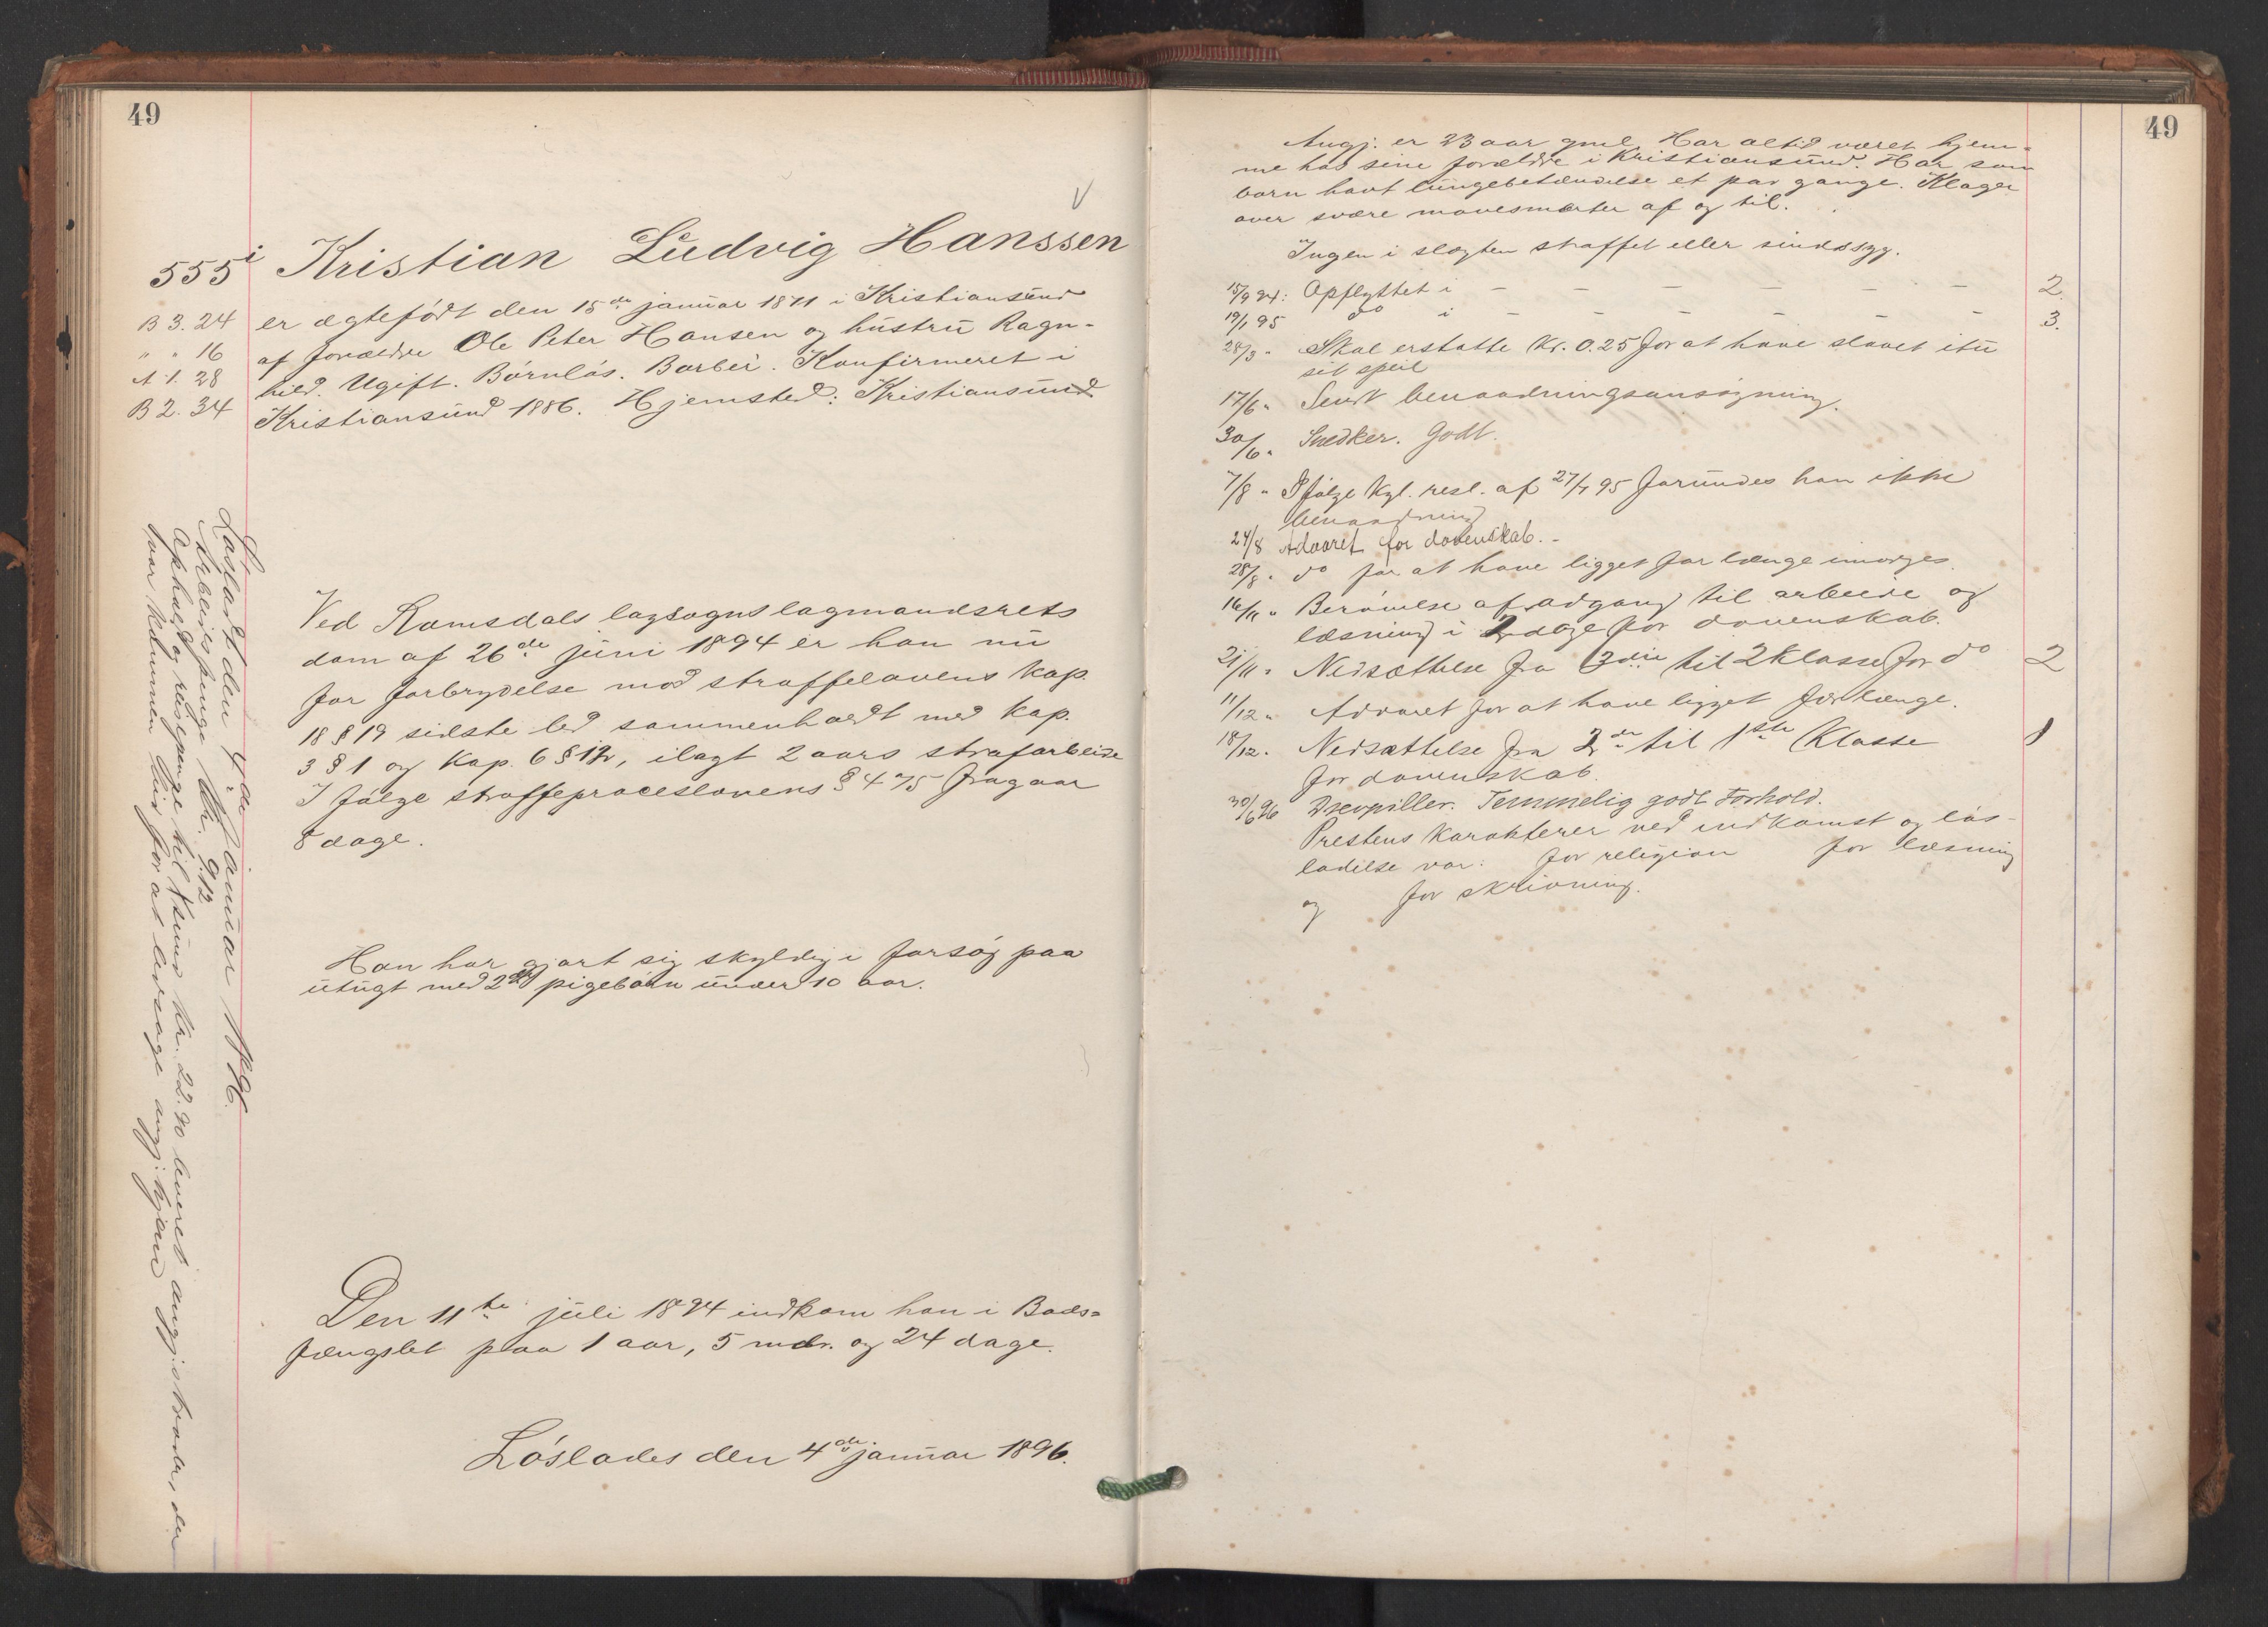 49
555 i Kristian Ludvig Hanssen
B 3. 24
" " 16
A 1. 28
B 2. 34
er ægtefødt den 15de januar 1871 i Kristiansund
af forældre Ole Peter Hansen og hustru Ragn-
hild. Ugift. Børnløs. Barber. Konfirmeret i
Kristiansund 1886. Hjemsted: Kristiansund
Ved Romsdals lagsogns lagmandsrets
dom af 26de juni 1894 er han nu
for forbrydelse mod straffelovens kap.
18 § 19 sidste led sammenholdt med kap.
3 § 1 og kap. 6 § 12, ilagt 2 aars strafarbeide
I følge straffeproceslovens § 475 fragaar
8 dage.
Han har gjort sig skyldig i forsøg paa
utugt med 2 pigebørn under 10 aar.
Den 11te juli 1894 indkom han i Bods-
fængslet paa 1 aar, 5 mdr. og 24 dage.
Løslades den 4de januar 1896.
Løsladt den 4de Januar 1896.
Arbeidspenge Kr. 9.12
Ophold og reisepenge til Ksund Kr. 22.90 leveret angj:s broder, der
var kommen hid for at ledsage angj. hjem
49
Angj. er 23 aar gml. Har altid været hjem-
me hos sine forældre i Kristiansund. Har som
barn havt lungebetændelse et par gange. Klager
over svære mavesmerter af og til.
Ingen i slægten straffet eller sindssyg.
15/9 94: Opflyttet i - - - - - - 2.
19/1 95 do i - - - - - - 3.
28/3 " Skal erstatte Kr. 0.25 for at have slaaet itu
sit speil
17/6 " Sendt benaadningsansøgning.
30/6 " Snedker. Godt.
7/8 " Ifølge Kgl. resl. af 27/7 95 forundes han ikke
benaadning
24/8 Advaret for dovenskab. -
28/8 " do for at have ligget for længe imorges.
16/11 " Berøvelse af adgang til arbeide og
læsning i 2 dage for dovenskab.
21/11 " Nedsættelse fra 3die til 2 Klasse for do 2
11/12 " Advaret for at have ligget for længe.
18/12 " Nedsættelse fra 2den til 1ste Klasse 1
for dovenskab.
30/6 96 Drevpiller. Temmelig godt Forhold.
Prestens karakterer ved indkomst og løs-
ladelse var: for religion for læsning
og for skrivning.